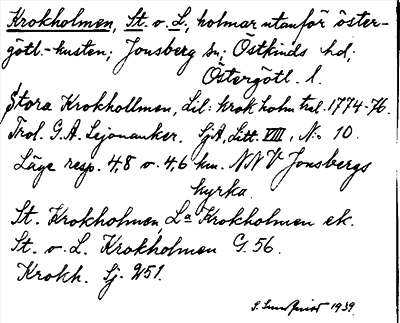 Krokholmen, St. o. L., holmar utanför öster-
götl.-kusten; Jonsberg sn; Östkinds hd;
Östergötl. l.
Stora Krokhollmen, Lil: krok holm tnl. 1774-76.
Trol. G. A. Lejonanker. SjA, Litt. VIII, No 10.
Läge resp. 4,8 o. 4,6 km. NNV Jonsbergs
kyrka.
St. Krokholmen, La Krokholmen ek.
St. o. L. Krokholmen G. 56.
Krokh. Sj. 251.
S. Sundquist 1939.